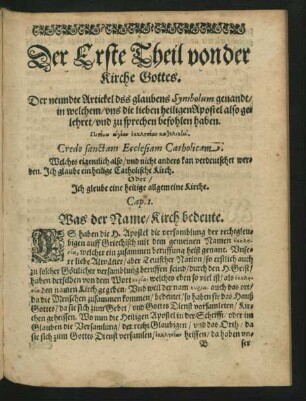 Der Erste Theil von der
Kirche Gottes.
Der neundte Artickel dss glaubens Symbolum genandt/
in welchem/ vns die lieben heiligen Apostel also ge
lehret/ vnd zu sprechen befohlen haben.
Credo sanctam Ecclesiam Catholicam.
Welches eigentlich also/ vnd nicht anders kan verdeutschet wer
den. Ich glaube ein heilige Catholische Kirch.
Oder/
Ich gleube eine heilige allgemeine Kirche.
Cap. 1.
Was der Name/ Kirch bedeute.
ES haben die H. Apostel die versamblung der rechtgleu-
bigen auff Griechisch mit dem gemeinen Namen
welcher ein zusammen beruffung heist genant. Vnse-
re liebe Altvätter/ aber Deutscher Nation/ so erstlich auch
zu solcher Götlicher versamblung beruffen seind/ durch den H. Geist/
haben derselben von dem Wort welches eben so viel ist/ als
den namen Kirch gegeben: Vnd weil der nam auch das ort/
da die Menschen zusammen kommen/ bedeutet/ so haben sie das Hauß
Gottes/ da sie sich zum Gebet/ vnd Gottes Dienst versamleten/ Kir-
chen geheissen. Wo nun die Heiligen Apostel in der Schrifft/ oder im
Glauben die Versamlung/ der recht Glaubigen/ vnd das Orth/ da
sie sich zum Gottes Dienst versamlen/ heissen/ da haben vn-
B ser